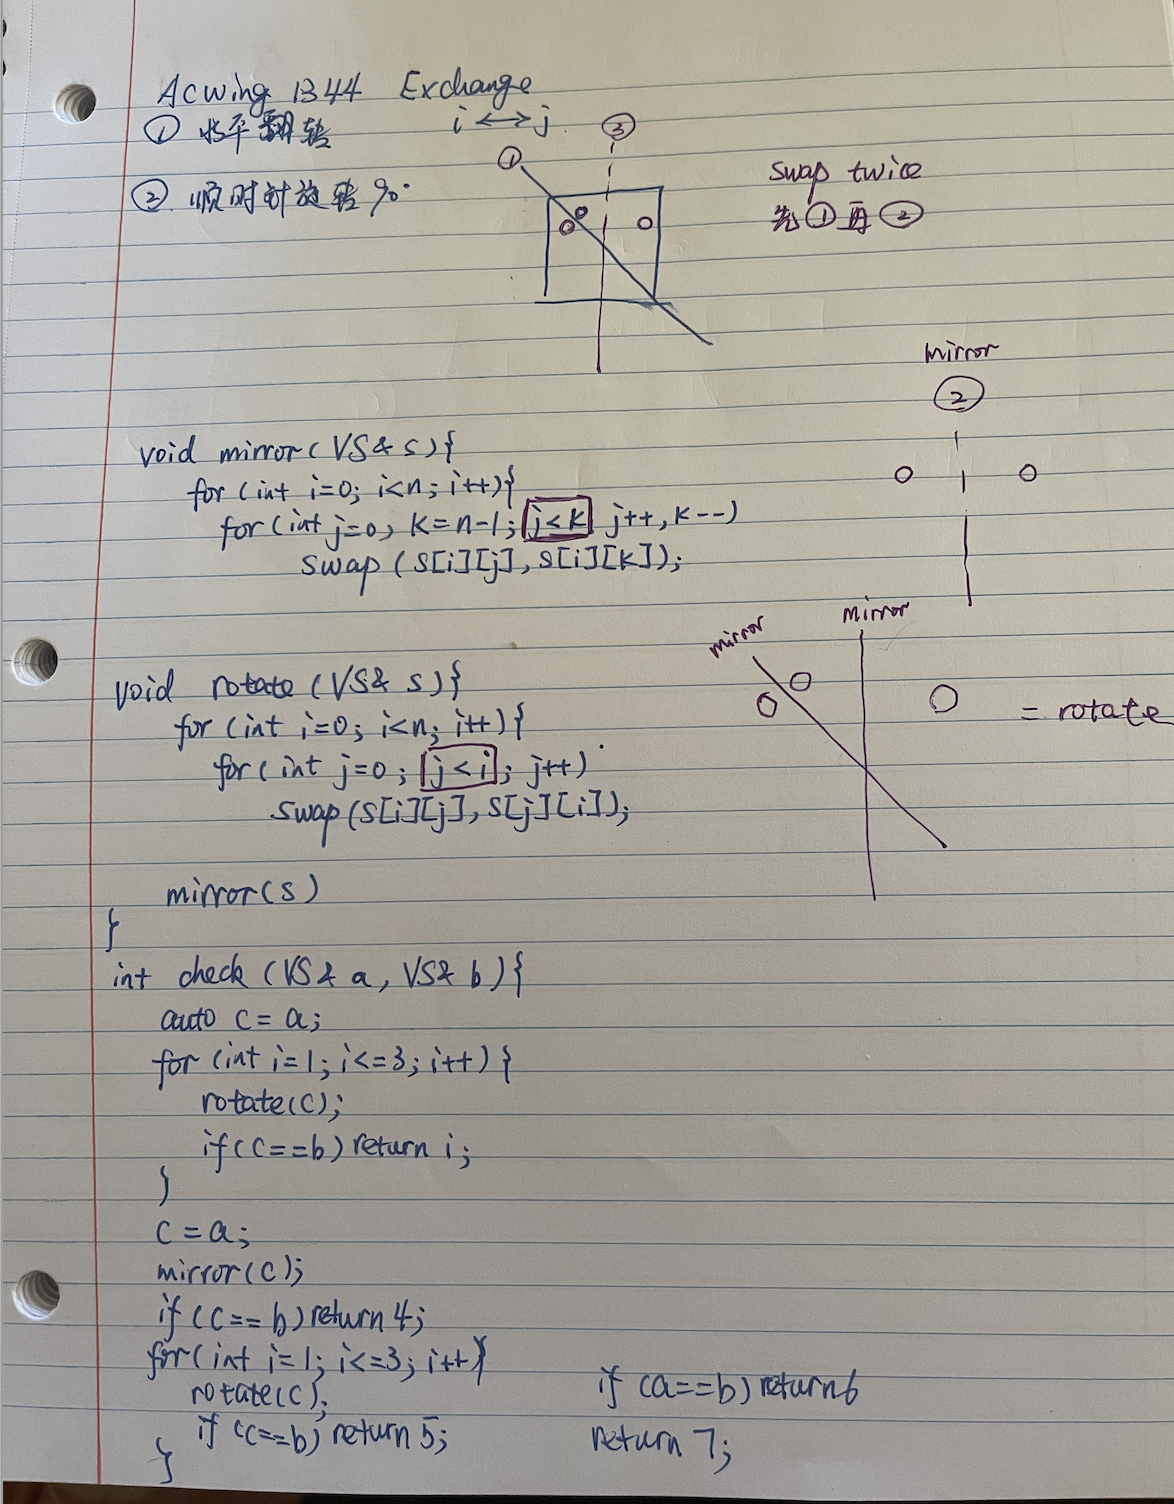 Acwing 1344 Exchange
i ⟷ j
① 水平翻转
② 顺时针旋转90°
①
③
swap twice
先①再②
mirror
②
void mirror(VS& s){
for (int i=0; i<n; i++){
for (int j=0, k=n-1; j<k j++, k--)
swap (s[i][j], s[i][k]);
mirror
mirror
= rotate
void rotate (VS& s){
for (int i=0; i<n; i++){
for (int j=0; j<i; j++)
swap(s[i][j], s[j][i]);
mirror(s)
}
int check (VS& a, VS& b){
auto c = a;
for (int i=1; i<=3; i++){
rotate(c);
if (c==b) return i;
}
c = a;
mirror(c);
if (c==b) return 4;
for (int i=1; i<=3; i++){
rotate(c);
if (c==b) return 5;
}
if (a==b) return 6
return 7;